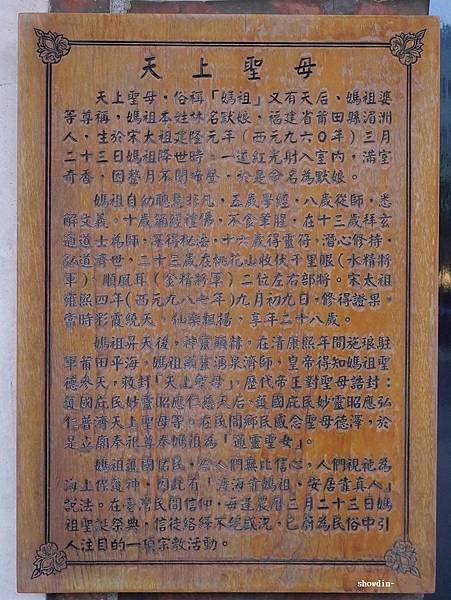 天上聖母
天上聖母，俗稱「媽祖」又有天后、媽祖婆
等尊稱，媽祖本姓林名默娘，福建省莆田縣湄洲
人，生於宋太祖建隆元年（西元九六０年）三月
二十三日媽祖降世時。一道紅光射入室內，滿室
奇香，因整月不聞啼聲，於是命名為默娘。
媽祖自幼聰慧非凡，五歲學經，八歲從師，悉
解文義。十歲誦經禮佛，不食葷腥，在十三歲拜玄
通道士為師，深得秘法，十六歲得靈符，潛心修持，
弘道濟世，二十三歲在桃花山收伏千里眼（水精將
軍）、順風耳（金精將軍）二位左右部將。宋太祖
雍熙四年(西元九八七年)九月初九日，修得證果，
當時彩霞繞天，仙樂飄揚，享年二十八歲。
媽祖昇天後，神靈顯赫，在清康熙年間施琅駐
軍莆田平海，媽祖顯靈湧泉濟師，皇帝得知媽祖聖
德參天，敕封「天上聖母」，歷代帝王對聖母誥封：
護國庇民妙靈昭應仁慈天后、護國庇民妙靈昭應弘
仁普濟天上聖母等。在民間鄉民感念聖母德澤，於
是立廟奉祀尊奉媽祖為「通靈聖女」。
媽祖護國佑民，給人們無比信心，人們視祂為
海上保護神，因此有「渡海靠媽祖，安居靠真人」
說法。在臺灣民間信仰，每逢農曆三月二十三日媽
祖聖誕祭典，信徒絡繹不絕盛況，已蔚為民俗中引
人注目的一項宗教活動。
showdin-